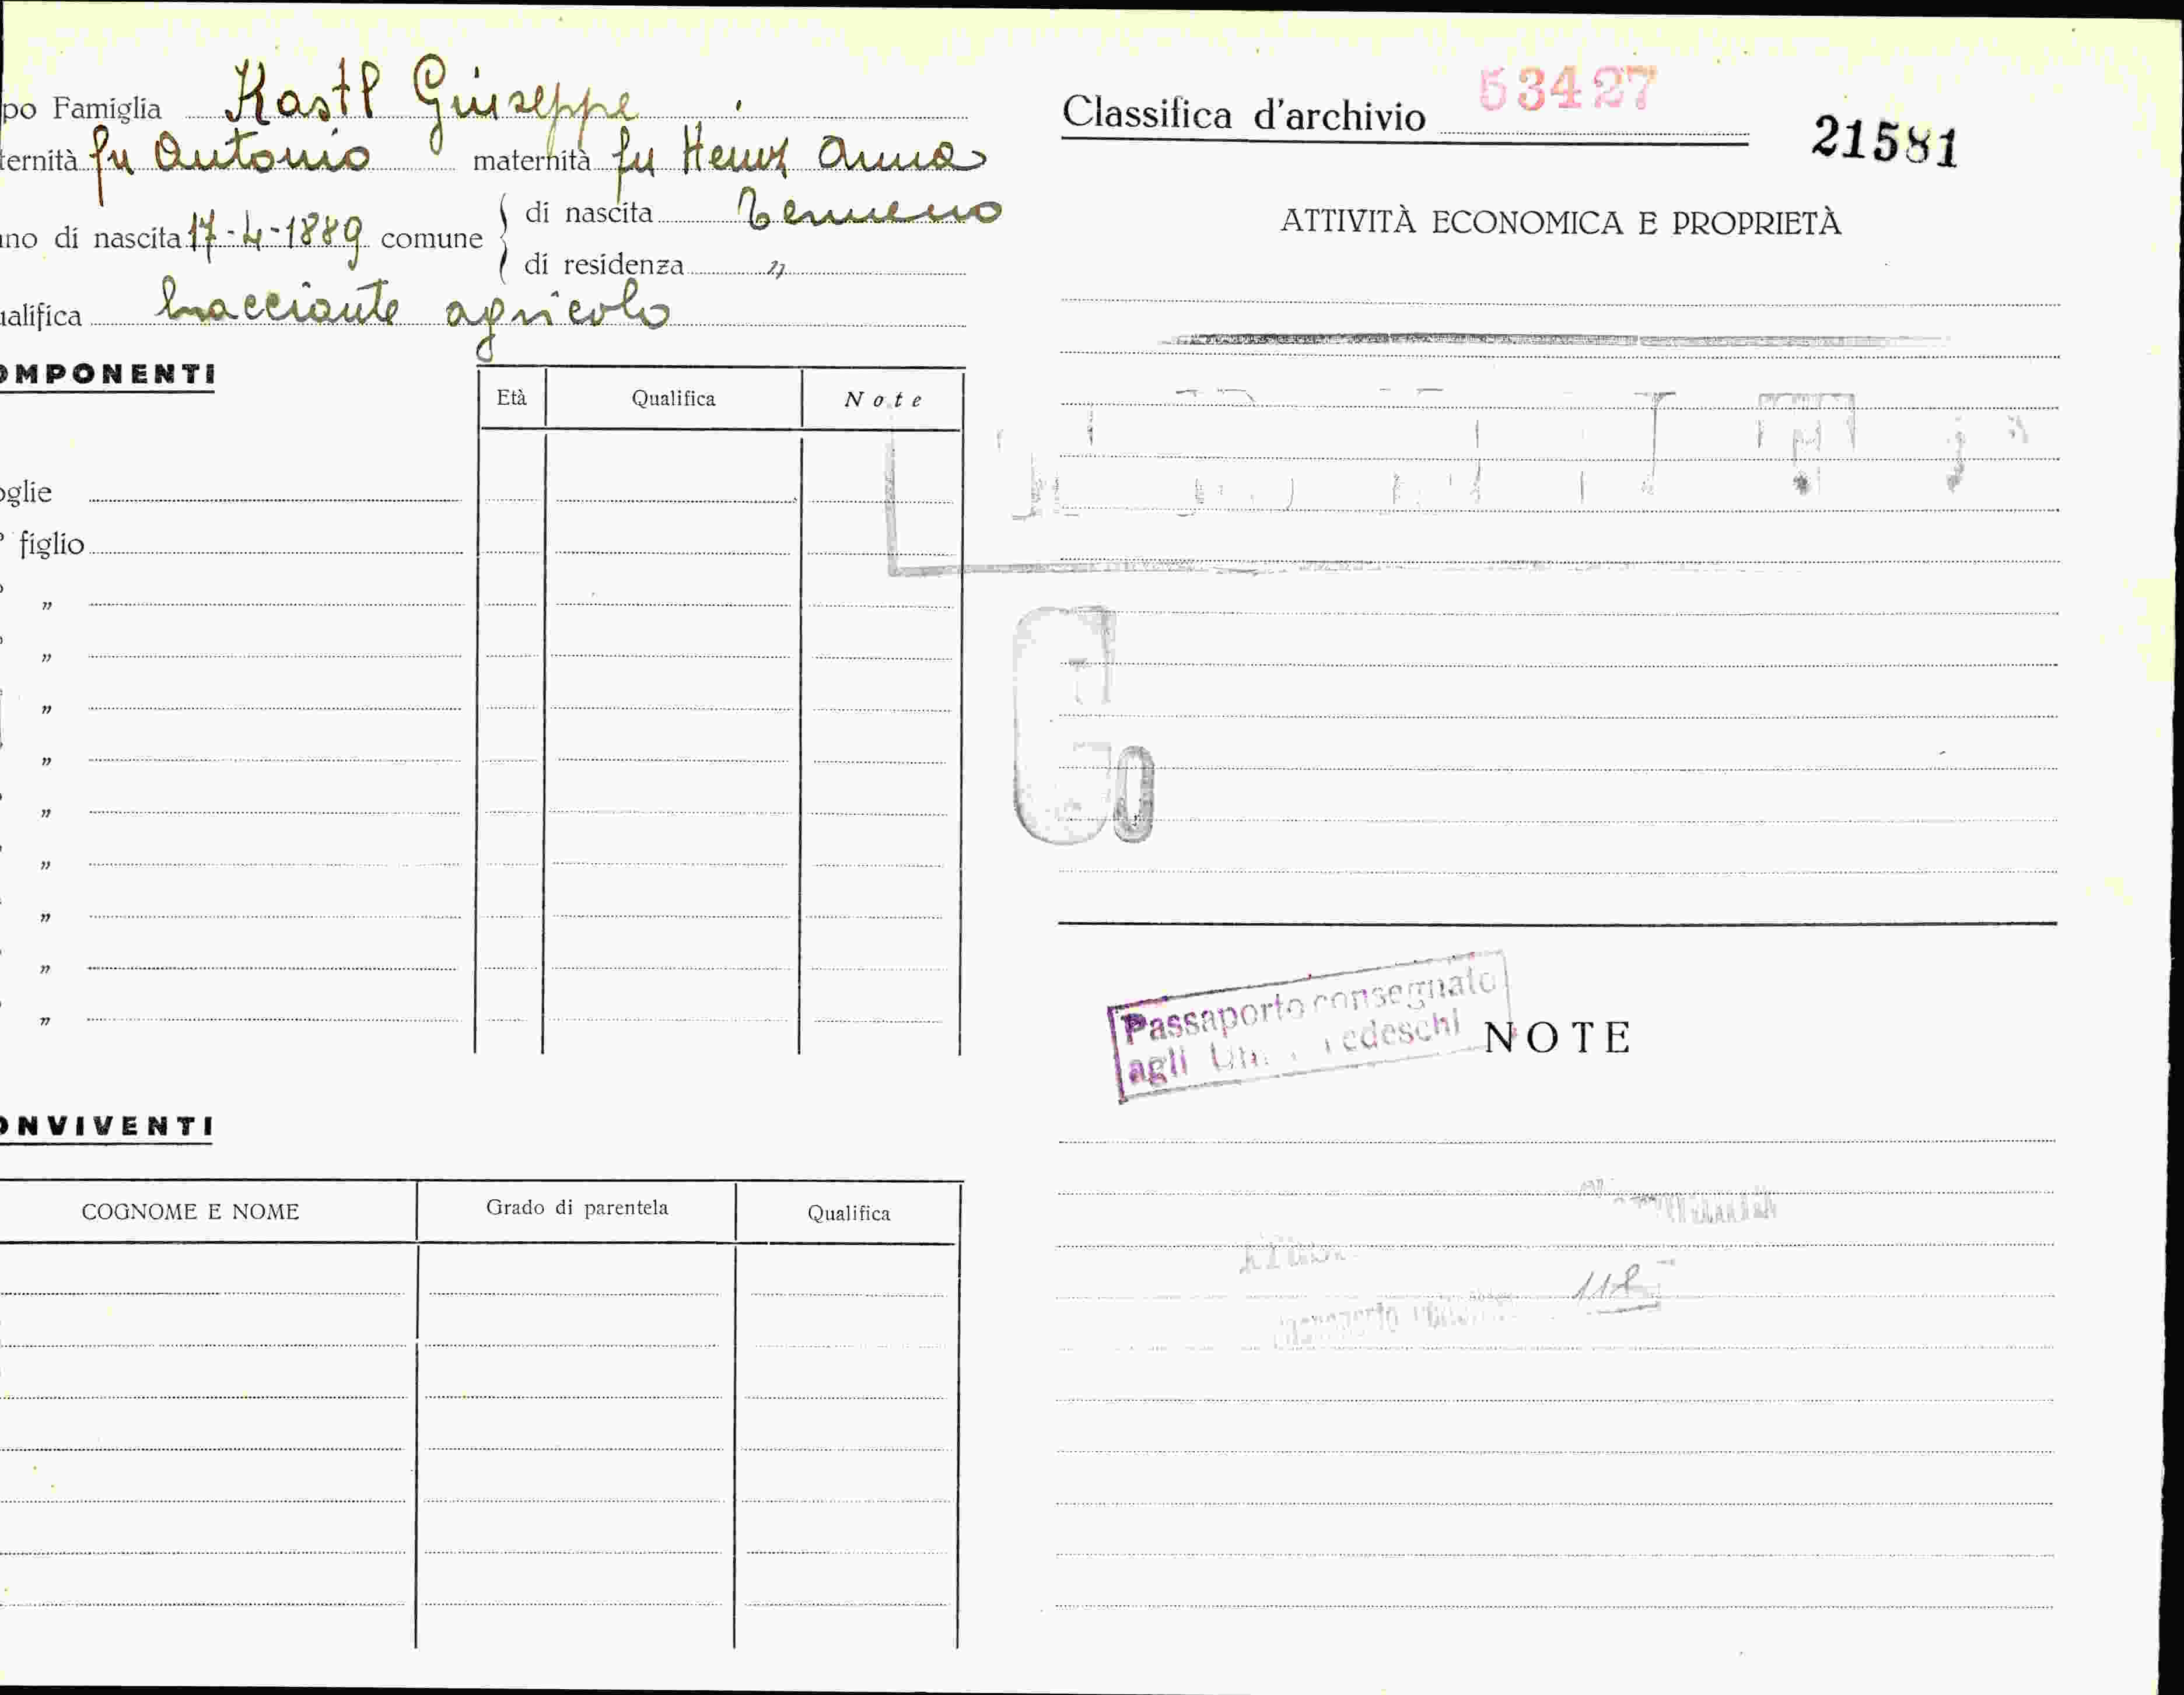 po Famiglia Kastl Giuseppe
ternità fu Antonio maternità fu Heinz Anna
no di nascita 17-4-1889 comune di nascita Termeno
di residenza "
ualifica bracciante agricolo
OMPONENTI
Età Qualifica Note
oglie
figlio
"
"
"
"
"
"
"
"
"
ONVIVENTI
COGNOME E NOME Grado di parentela Qualifica
Classifica d'archivio 53427
21581
ATTIVITÀ ECONOMICA E PROPRIETÀ
Passaporto consegnato
agli Tedeschi
NOTE
118